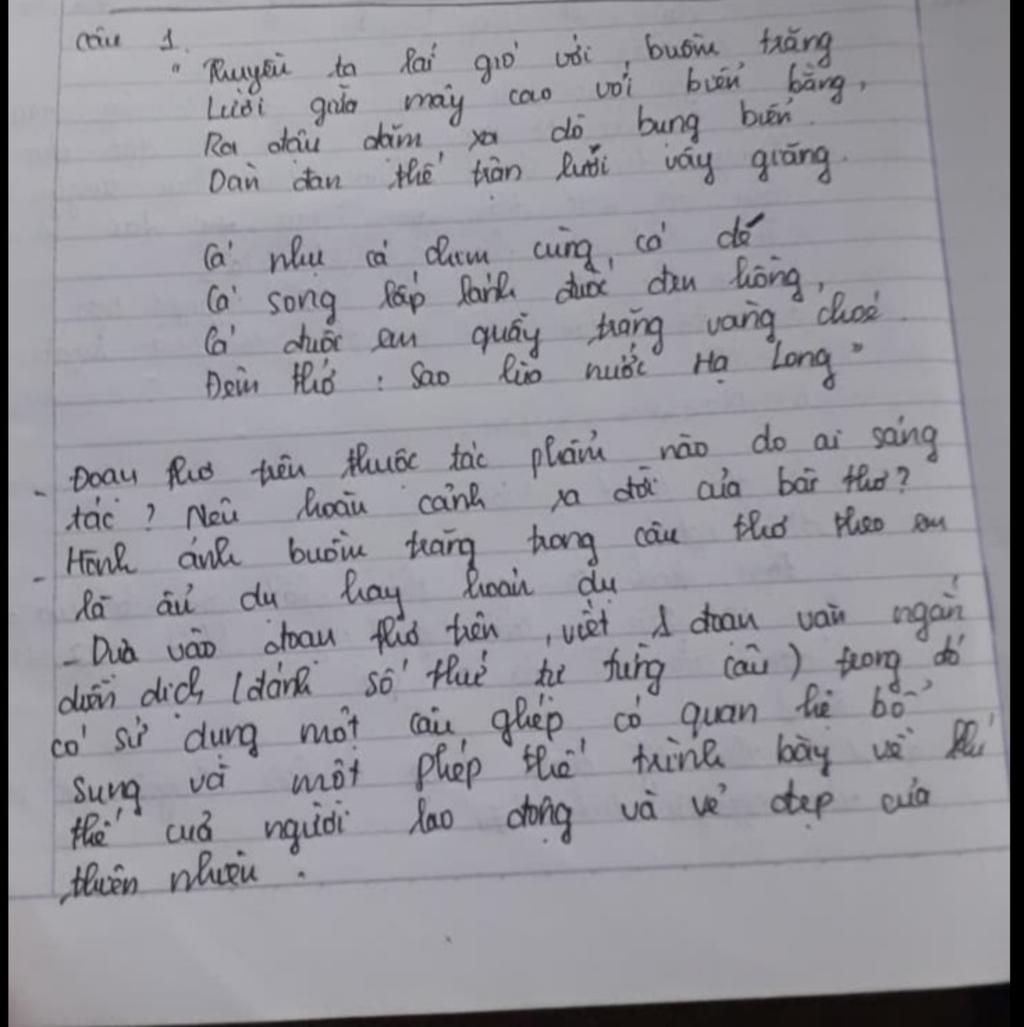 Câu 1.
" Thuyền ta lái gió với buồm trăng
Lướt giữa mây cao với biển bằng,
Ra đậu dặm xa dò bụng biển.
Dàn đan thế trận lưới vây giăng.
Cá nhụ cá chim cùng cá đé
Cá song lấp lánh đuốc đen hồng,
Cá đuôi em quẫy trăng vàng choé.
Đêm thở : Sao lùa nước Hạ Long "
- Đoạn thơ trên thuộc tác phẩm nào do ai sáng
tác ? Nêu hoàn cảnh ra đời của bài thơ?
- Hình ảnh buồm trăng trong câu thơ theo em
là ẩn dụ hay hoán dụ
- Dựa vào đoạn thơ trên, viết 1 đoạn văn ngắn
diễn dịch (đánh số thứ tự từng câu) trong đó
có sử dụng một câu ghép có quan hệ bổ
sung và một phép thế trình bày về khí
thế của người lao động và vẻ đẹp của
thiên nhiên.